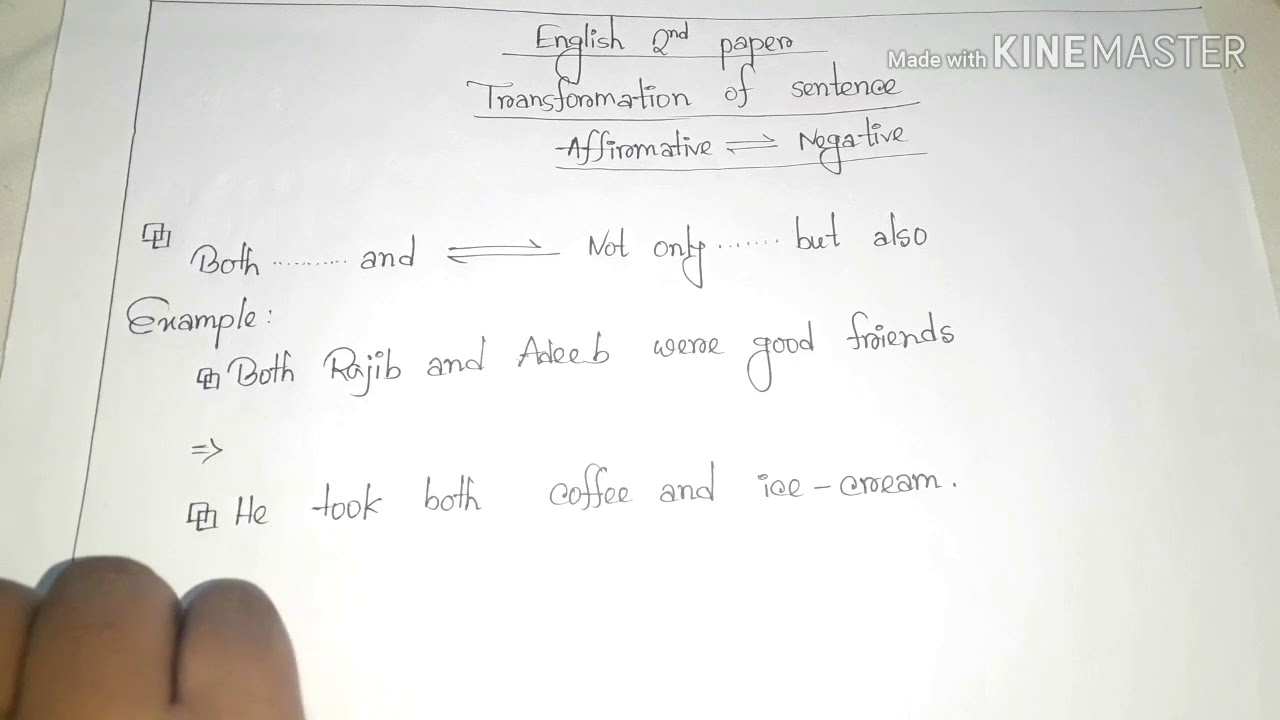 English 2nd paper
Made with KINEMASTER
Transformation of sentence
Affirmative ⇌ Negative
Both ........... and ⇌ Not only ....... but also
Example:
Both Rajib and Adeeb were good friends
⇒
He took both coffee and ice-cream.